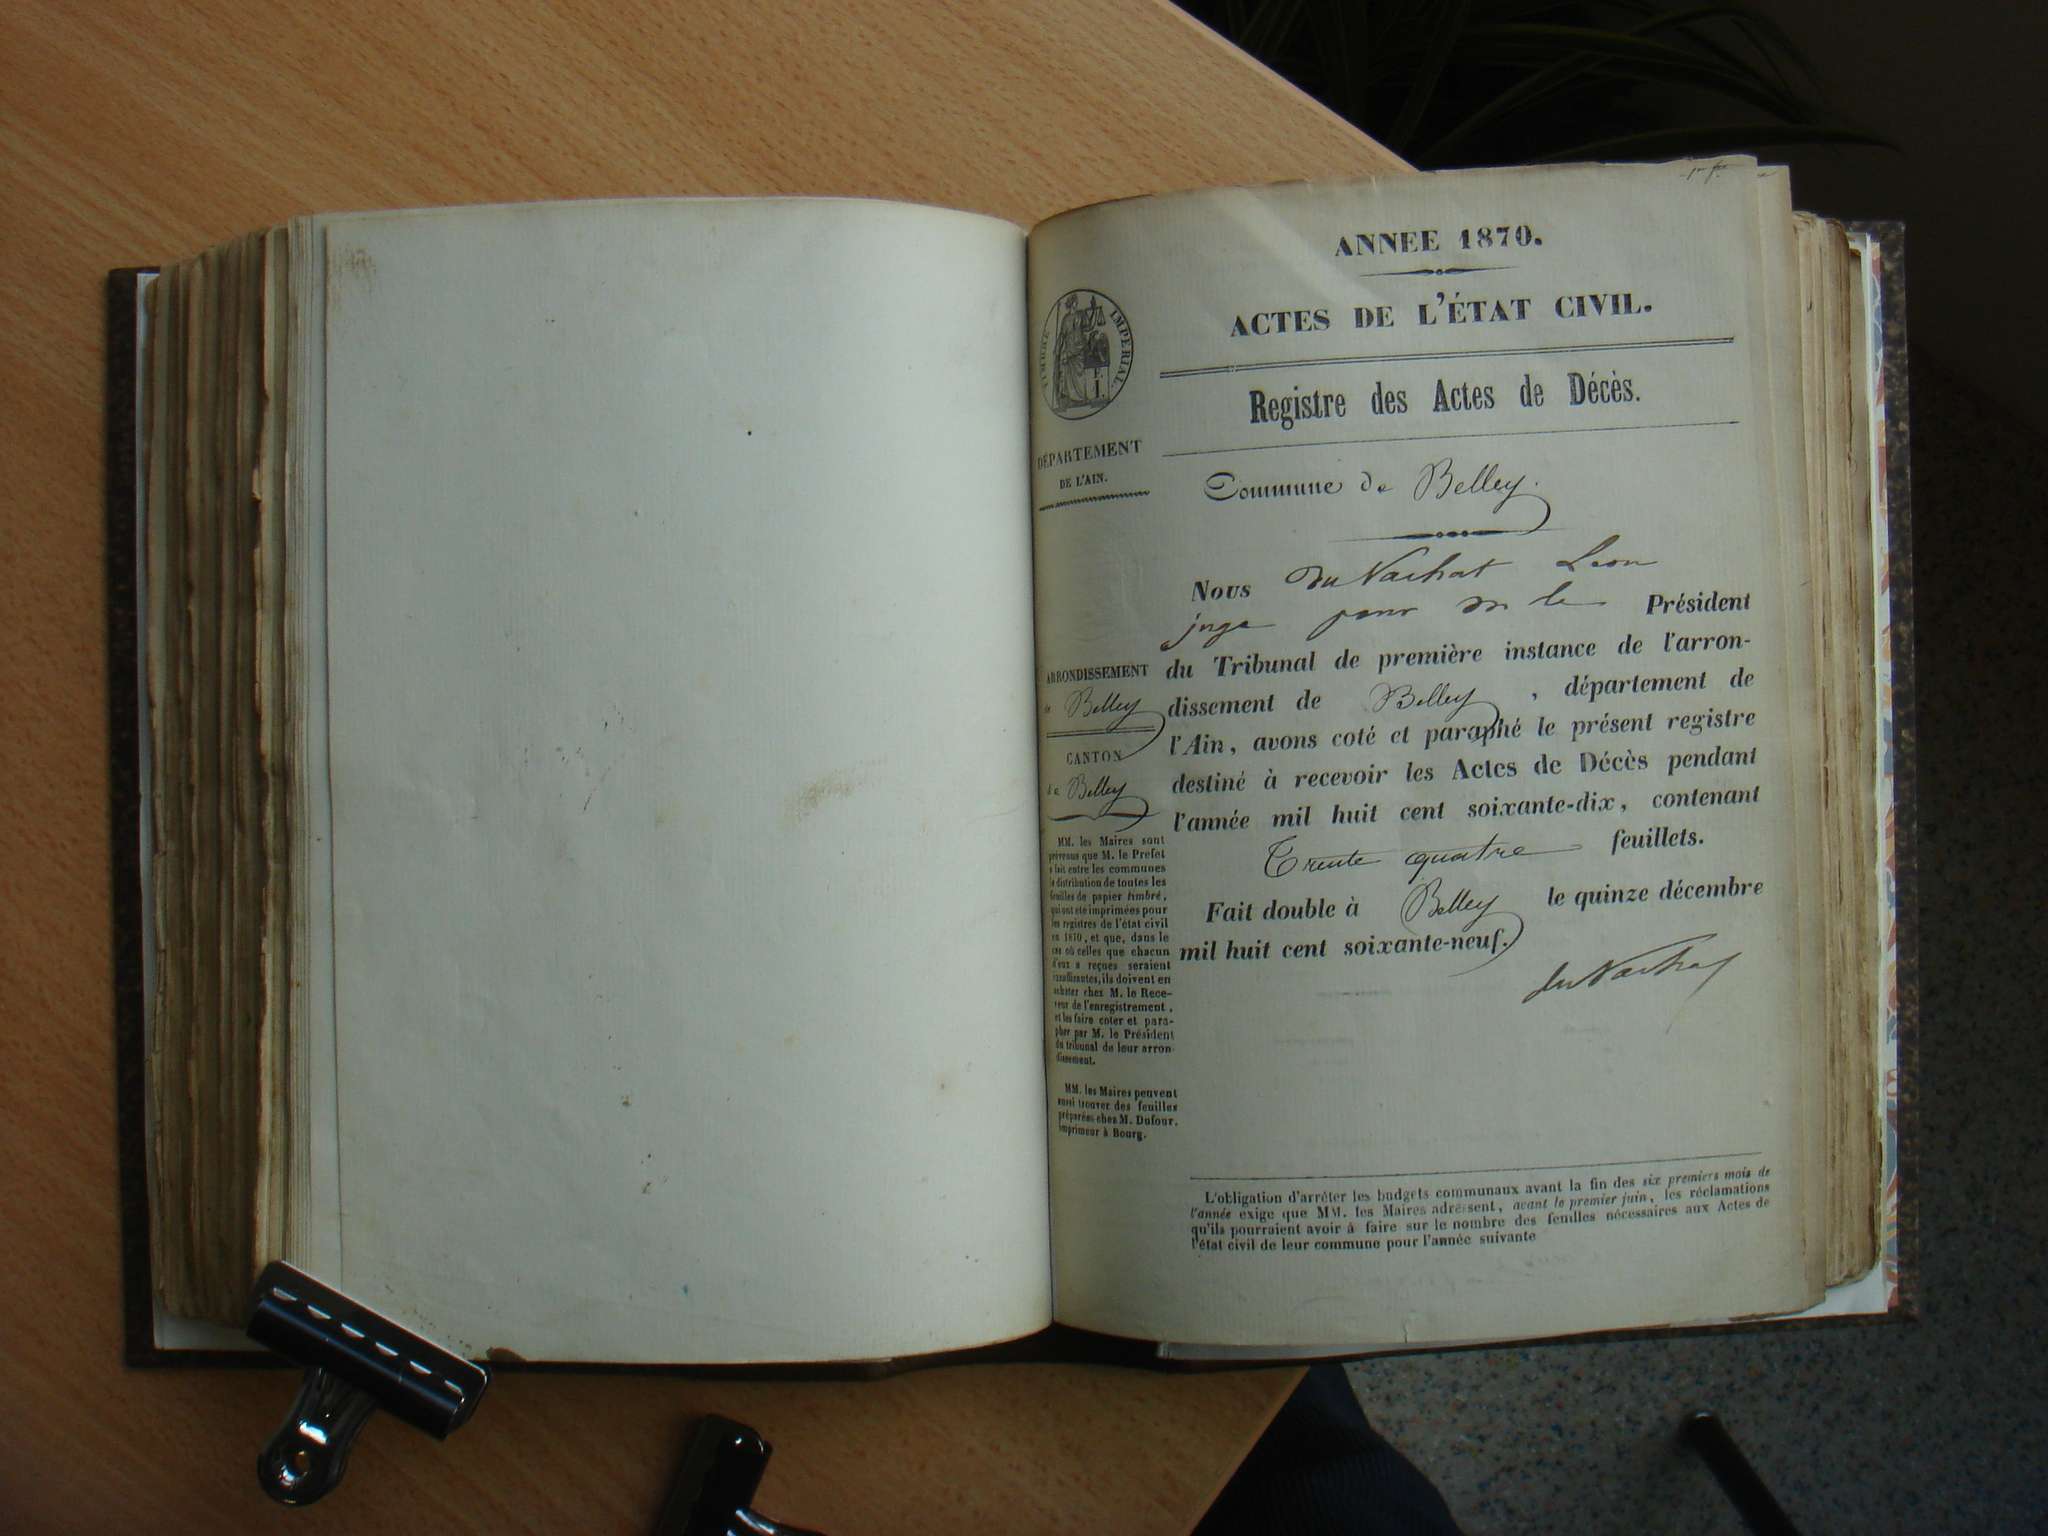 ANNEE 1870.
ACTES DE L'ÉTAT CIVIL.
Registre des Actes de Décès.
TIMBRE IMPÉRIAL
DÉPARTEMENT
DE L'AIN.
Commune de Belley.
Nous du Nachat Leon
juge pour M le Président
du Tribunal de première instance de l'arron-
dissement de Belley, département de
l'Ain, avons coté et paraphé le présent registre
destiné à recevoir les Actes de Décès pendant
l'année mil huit cent soixante-dix, contenant
Trente quatre feuillets.
Fait double à Belley le quinze décembre
mil huit cent soixante-neuf.
du Nachat
ARRONDISSEMENT
de Belley
CANTON
de Belley
MM. les Maires sont
prévenus que M. le Préfet
a fait entre les communes
la distribution de toutes les
feuilles de papier timbré,
qui ont été imprimées pour
les registres de l'état civil
en 1870, et que, dans le
cas où celles que chacun
d'eux a reçues seraient
insuffisantes, ils doivent en
acheter chez M. le Rece-
veur de l'enregistrement,
et les faire coter et para-
pher par M. le Président
du tribunal de leur arron-
dissement.
MM. les Maires peuvent
aussi trouver des feuilles
préparées chez M. Dufour,
imprimeur à Bourg.
L'obligation d'arrêter les budgets communaux avant la fin des six premiers mois de
l'année exige que MM. les Maires adressent, avant le premier juin, les réclamations
qu'ils pourraient avoir à faire sur le nombre des feuilles nécessaires aux Actes de
l'état civil de leur commune pour l'année suivante